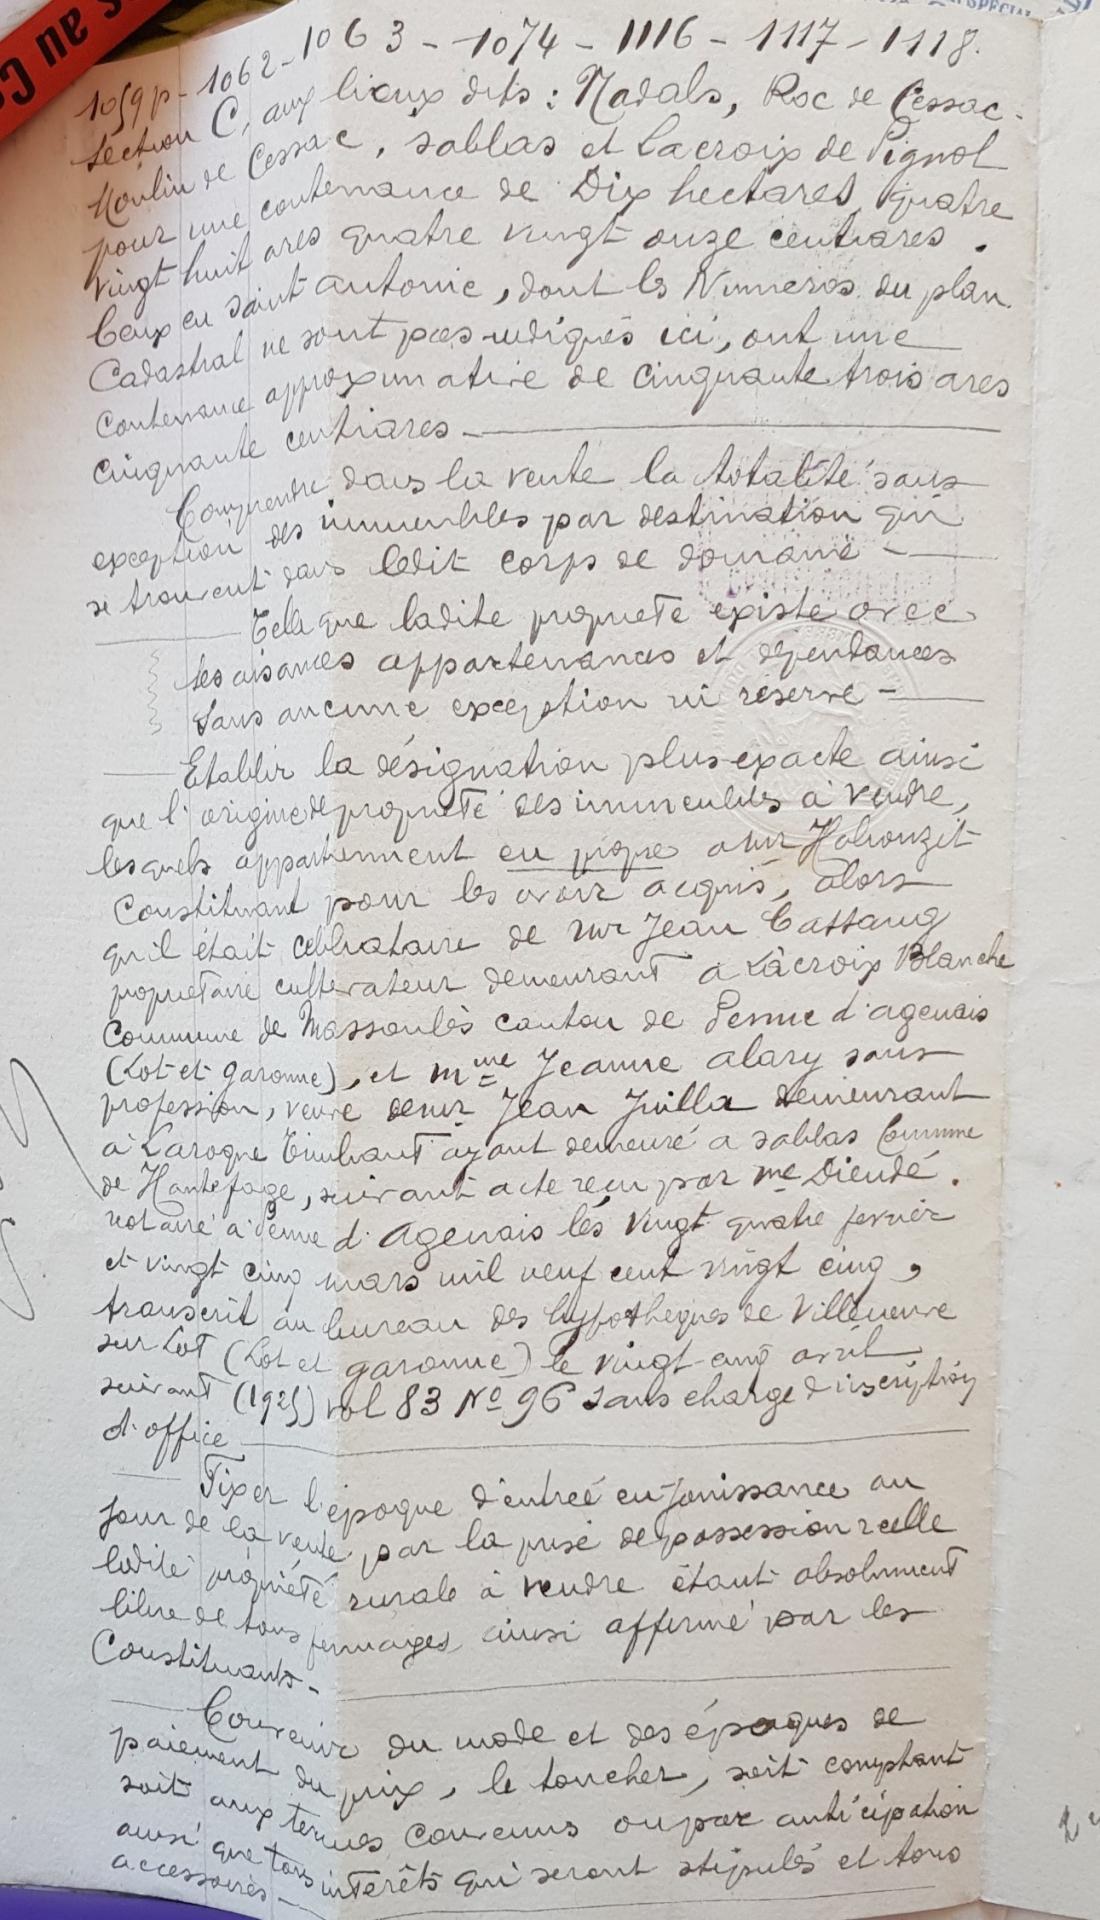 1059p - 1062 - 1063 - 1074 - 1116 - 1117 - 1118.
section C, aux lieux dits : Nadals, Roc de Cessac -
Moulin de Cessac, sablas et Lacroix de Pignol
pour une contenance de Dix hectares quatre
vingt huit ares quatre vingt onze centiares .
Ceux en Saint antonie, dont les Numeros du plan
Cadastral ne sont pas rédigés ici, ont une
Contenance approximative de cinquante trois ares
cinquante centiares -
Comprendre dans la vente la totalité sans
exception des immeubles par destination qui
se trouvent dans ledit corps de domaine -
Telle que ladite propriete existe avec
les aisances appartenances et dépendances
sans aucune exception ni réserve -
Etablir la désignation plus exacte ainsi
que l'origine de propriété des immeubles à vendre,
lesquels appartiennent en propre a Mr
Constituant pour les avoir acquis, alors
qu'il était célibataire de Mr Jean
propriétaire cultivateur demeurant a Lacroix Blanche
Commune de Massoulès canton de Penne d'agenais
(Lot-et-garonne), et Mme Jeanne alary sans
profession, veuve de Mr Jean Juilla demeurant
à Laroque Timbaut ayant demeuré a sablas Commune
de Hautefage, suivant acte reçu par me Dieudé .
notaire à Penne d'Agenais les vingt quatre fevrier
et vingt cinq mars mil neuf cent vingt cinq,
transcrit au bureau des hypothèques de Villeneuve
sur Lot (Lot et garonne) le vingt cinq avril
suivant (1925) vol 83 No 96 sans charge d'inscription
d'office
Fixer l'époque d'entrée en jouissance au
jour de la vente par la prise de possession réelle
ladite propriété rurale à vendre étant absolument
libre de tous fermages, ainsi affirmé par les
Constituants -
Convenir du mode et des époques de
paiement du prix, le toucher, soit comptant
soit aux termes convenus ou par anticipation
ainsi que tous intérêts qui seront stipulés et tous
accessoires -